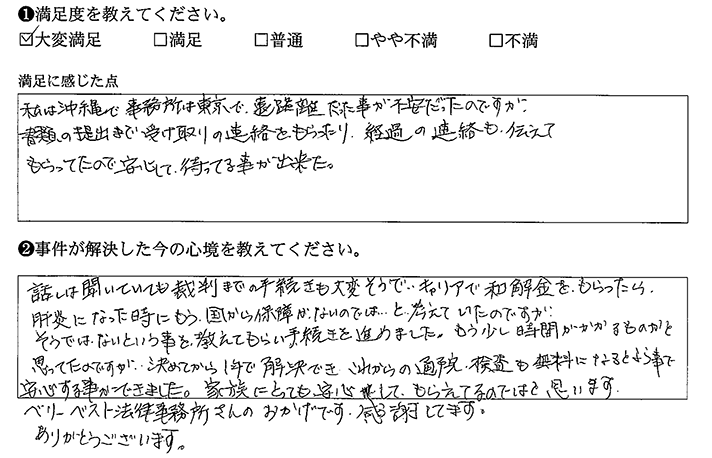 ❶満足度を教えてください。
☑大変満足 □満足 □普通 □やや不満 □不満
満足に感じた点
私は沖縄で事務所は東京で、遠距離だった事が不安だったのですが、
書類の提出まで受け取りの連絡をもらったり、経過の連絡も、伝えて
もらってたので安心して、待ってる事が出来た。
❷事件が解決した今の心境を教えてください。
話しは聞いていても裁判までの手続きも大変そうで…キャリアで和解金を、もらったら、
肝炎になった時にもう、国から保障がないのでは…と、考えていたのですが、
そうではないという事を、教えてもらい手続きを進めました。もう少し時間がかかるものかと
思ってたのですが…決めてから1年で解決でき、これからの通院、検査も無料になるとゆう事で
安心する事ができました。家族にとっても安心して、もらえてるのではと、思います。
ベリーベスト法律事務所さんのおかげです。感謝してます。
ありがとうございます。